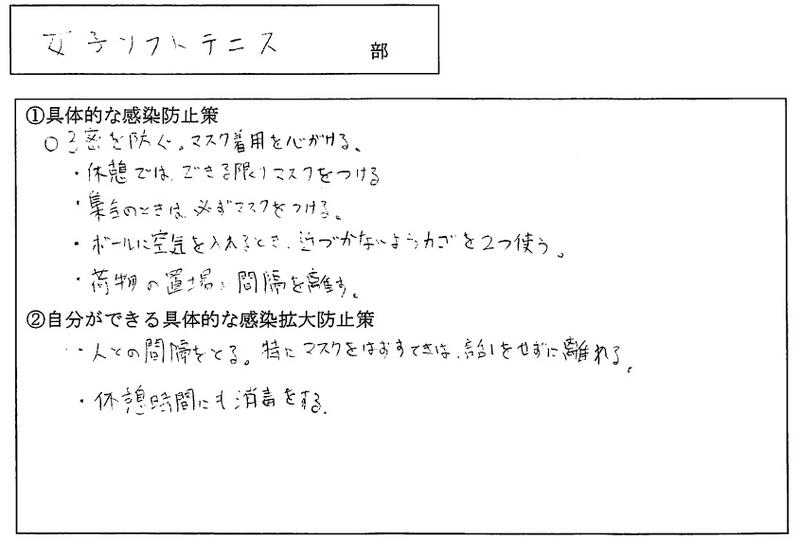 女子ソフトテニス 部
①具体的な感染防止策
○3密を防ぐ。マスク着用を心がける。
・休憩では、できる限りマスクをつける
・集合のときは、必ずマスクをつける。
・ボールに空気を入れるとき、近づかないようカゴを2つ使う。
・荷物の置場は間隔を離す。
②自分ができる具体的な感染拡大防止策
・人との間隔をとる。特にマスクをはずすときは、話しをせずに離れる。
・休憩時間にも消毒をする。